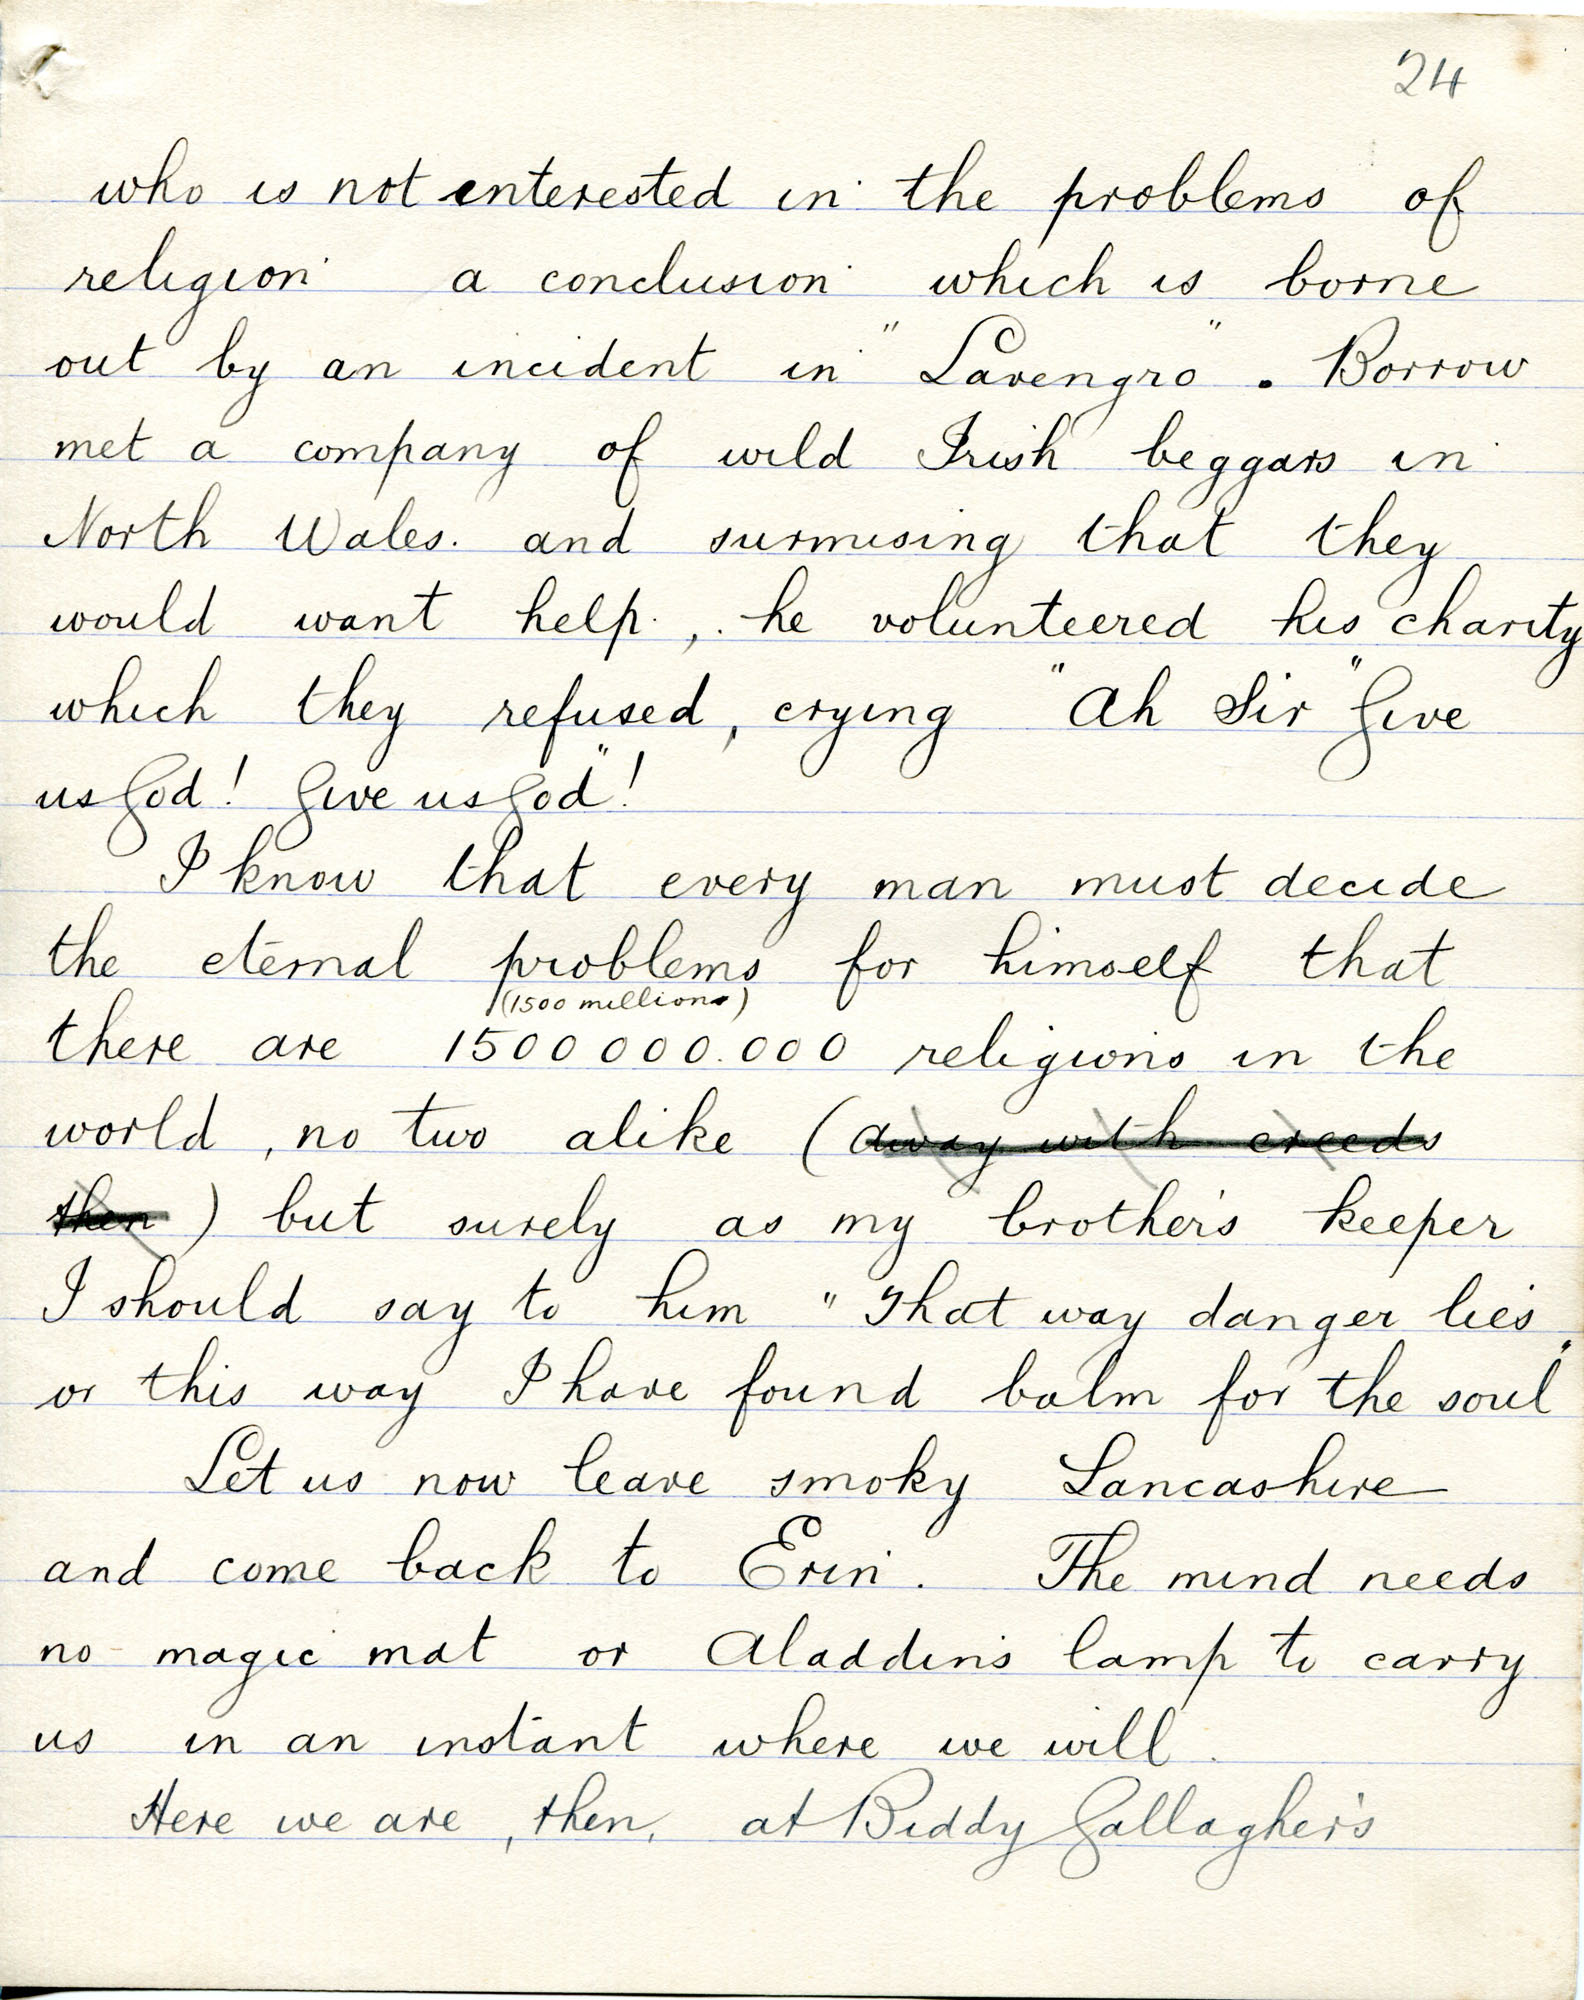 24
who is not interested in the problems of
religion a conclusion which is borne
out by an incident in "Lavengro". Borrow
met a company of wild Irish beggars in
North Wales. and surmising that they
would want help, he volunteered his charity
which they refused, crying "Ah Sir" Give
us God! Give us God"!
I know that every man must decide
the eternal problems for himself that
(1500 millions)
there are 1500000.000 religions in the
world, no two alike (away with creeds
then) but surely as my brother's keeper
I should say to him "That way danger lies
or this way I have found balm for the soul"
Let us now leave smoky Lancashire
and come back to Erin. The mind needs
no magic mat or Aladdin's lamp to carry
us in an instant where we will.
Here we are, then, at Biddy Gallagher's